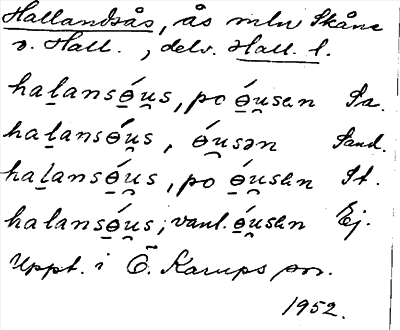 Hallandsås, ås mln Skåne
o. Hall., delv. Hall. l.
ha̱lansɵ́u̯s, po ɵ́u̯sən Sa.
halansɵ́u̯s, ɵ́u̯sən Sand.
halansɵ́u̯s, po ɵ́u̯sən St.
halansɵ́u̯s, vanl. ɵ́u̯sən Ej.
Uppt. i Ö. Karups sn.
1952.